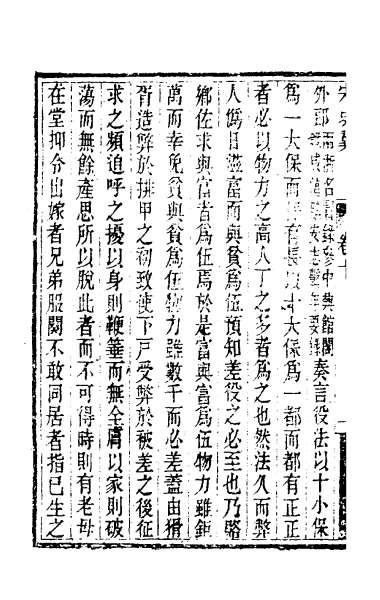 宋史翼 卷十
外郎
奏言役法以十小保
為一大保而大保為一都而都有正正
者必以物力之高人丁之多者為之也然法久而弊
人偽日滋富而與貧為伍預知差役之必至也乃賂
鄉佐求與富者為伍焉於是富與富為伍物力雖鉅
萬而幸免貧與貧為伍物力雖數千而必差蓋由猾
胥造弊於排甲之初致使下戶受弊於被差之後征
求之頻追呼之擾以身則鞭箠而無全膚以家則破
蕩而無餘產思所以脫此者而不可得時則有老母
在堂抑令出嫁者兄弟服闋不敢同居者指已生之